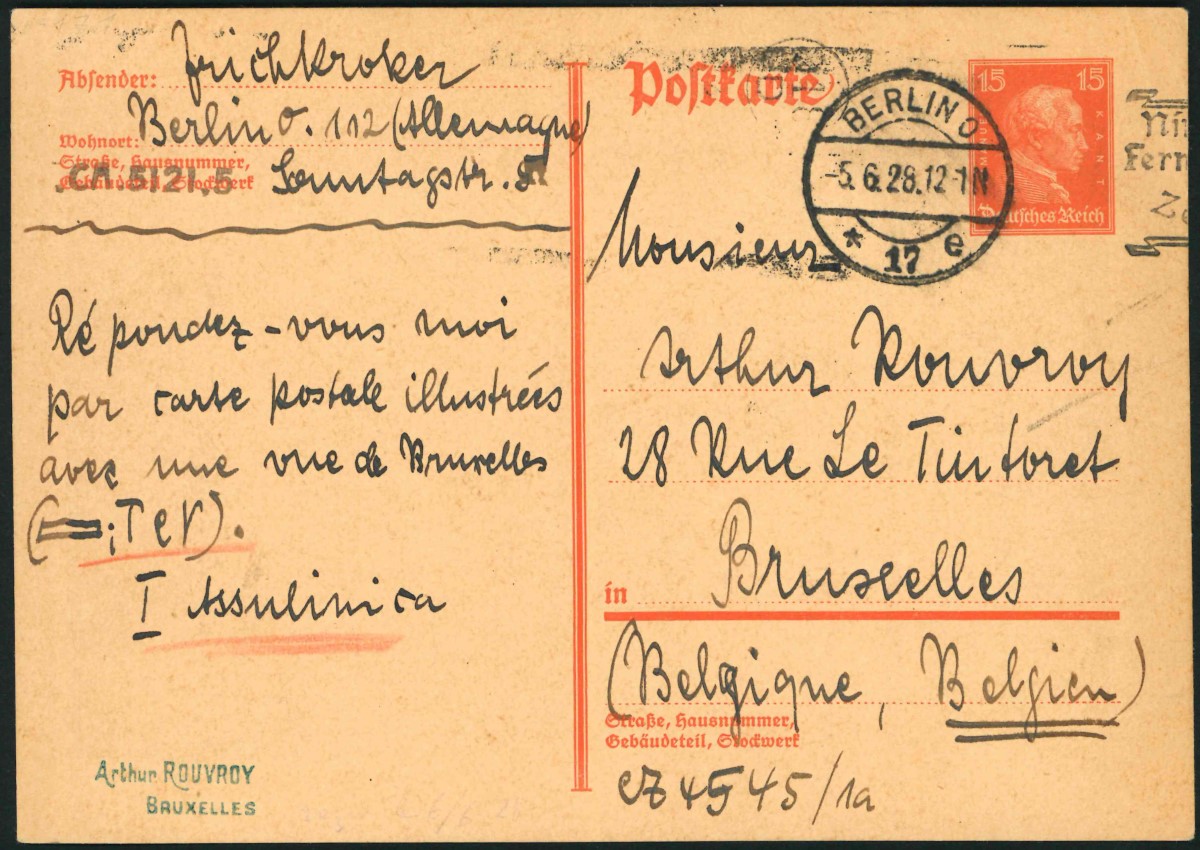 Absender: Erich Kroker
Wohnort: Berlin O. 112 (Allemagne)
Straße, Hausnummer,
Gebäudeteil, Stockwerk Sonntagstr. 5
CA 5121,5
Ré pondez-vous moi
par carte postale illustrées
avec une vue de Bruxelles
(TCV).
I Assulinica
Arthur ROUVROY
BRUXELLES
Postkarte
BERLIN O
-5.6.28.12-1N
* 17 e
15 15
IMMANUEL KANT
Deutsches Reich
Fern
Monsieur
Arthur Rouvroy
28 Rue Le Tintoret
in Bruxelles
(Belgique, Belgien)
Straße, Hausnummer,
Gebäudeteil, Stockwerk